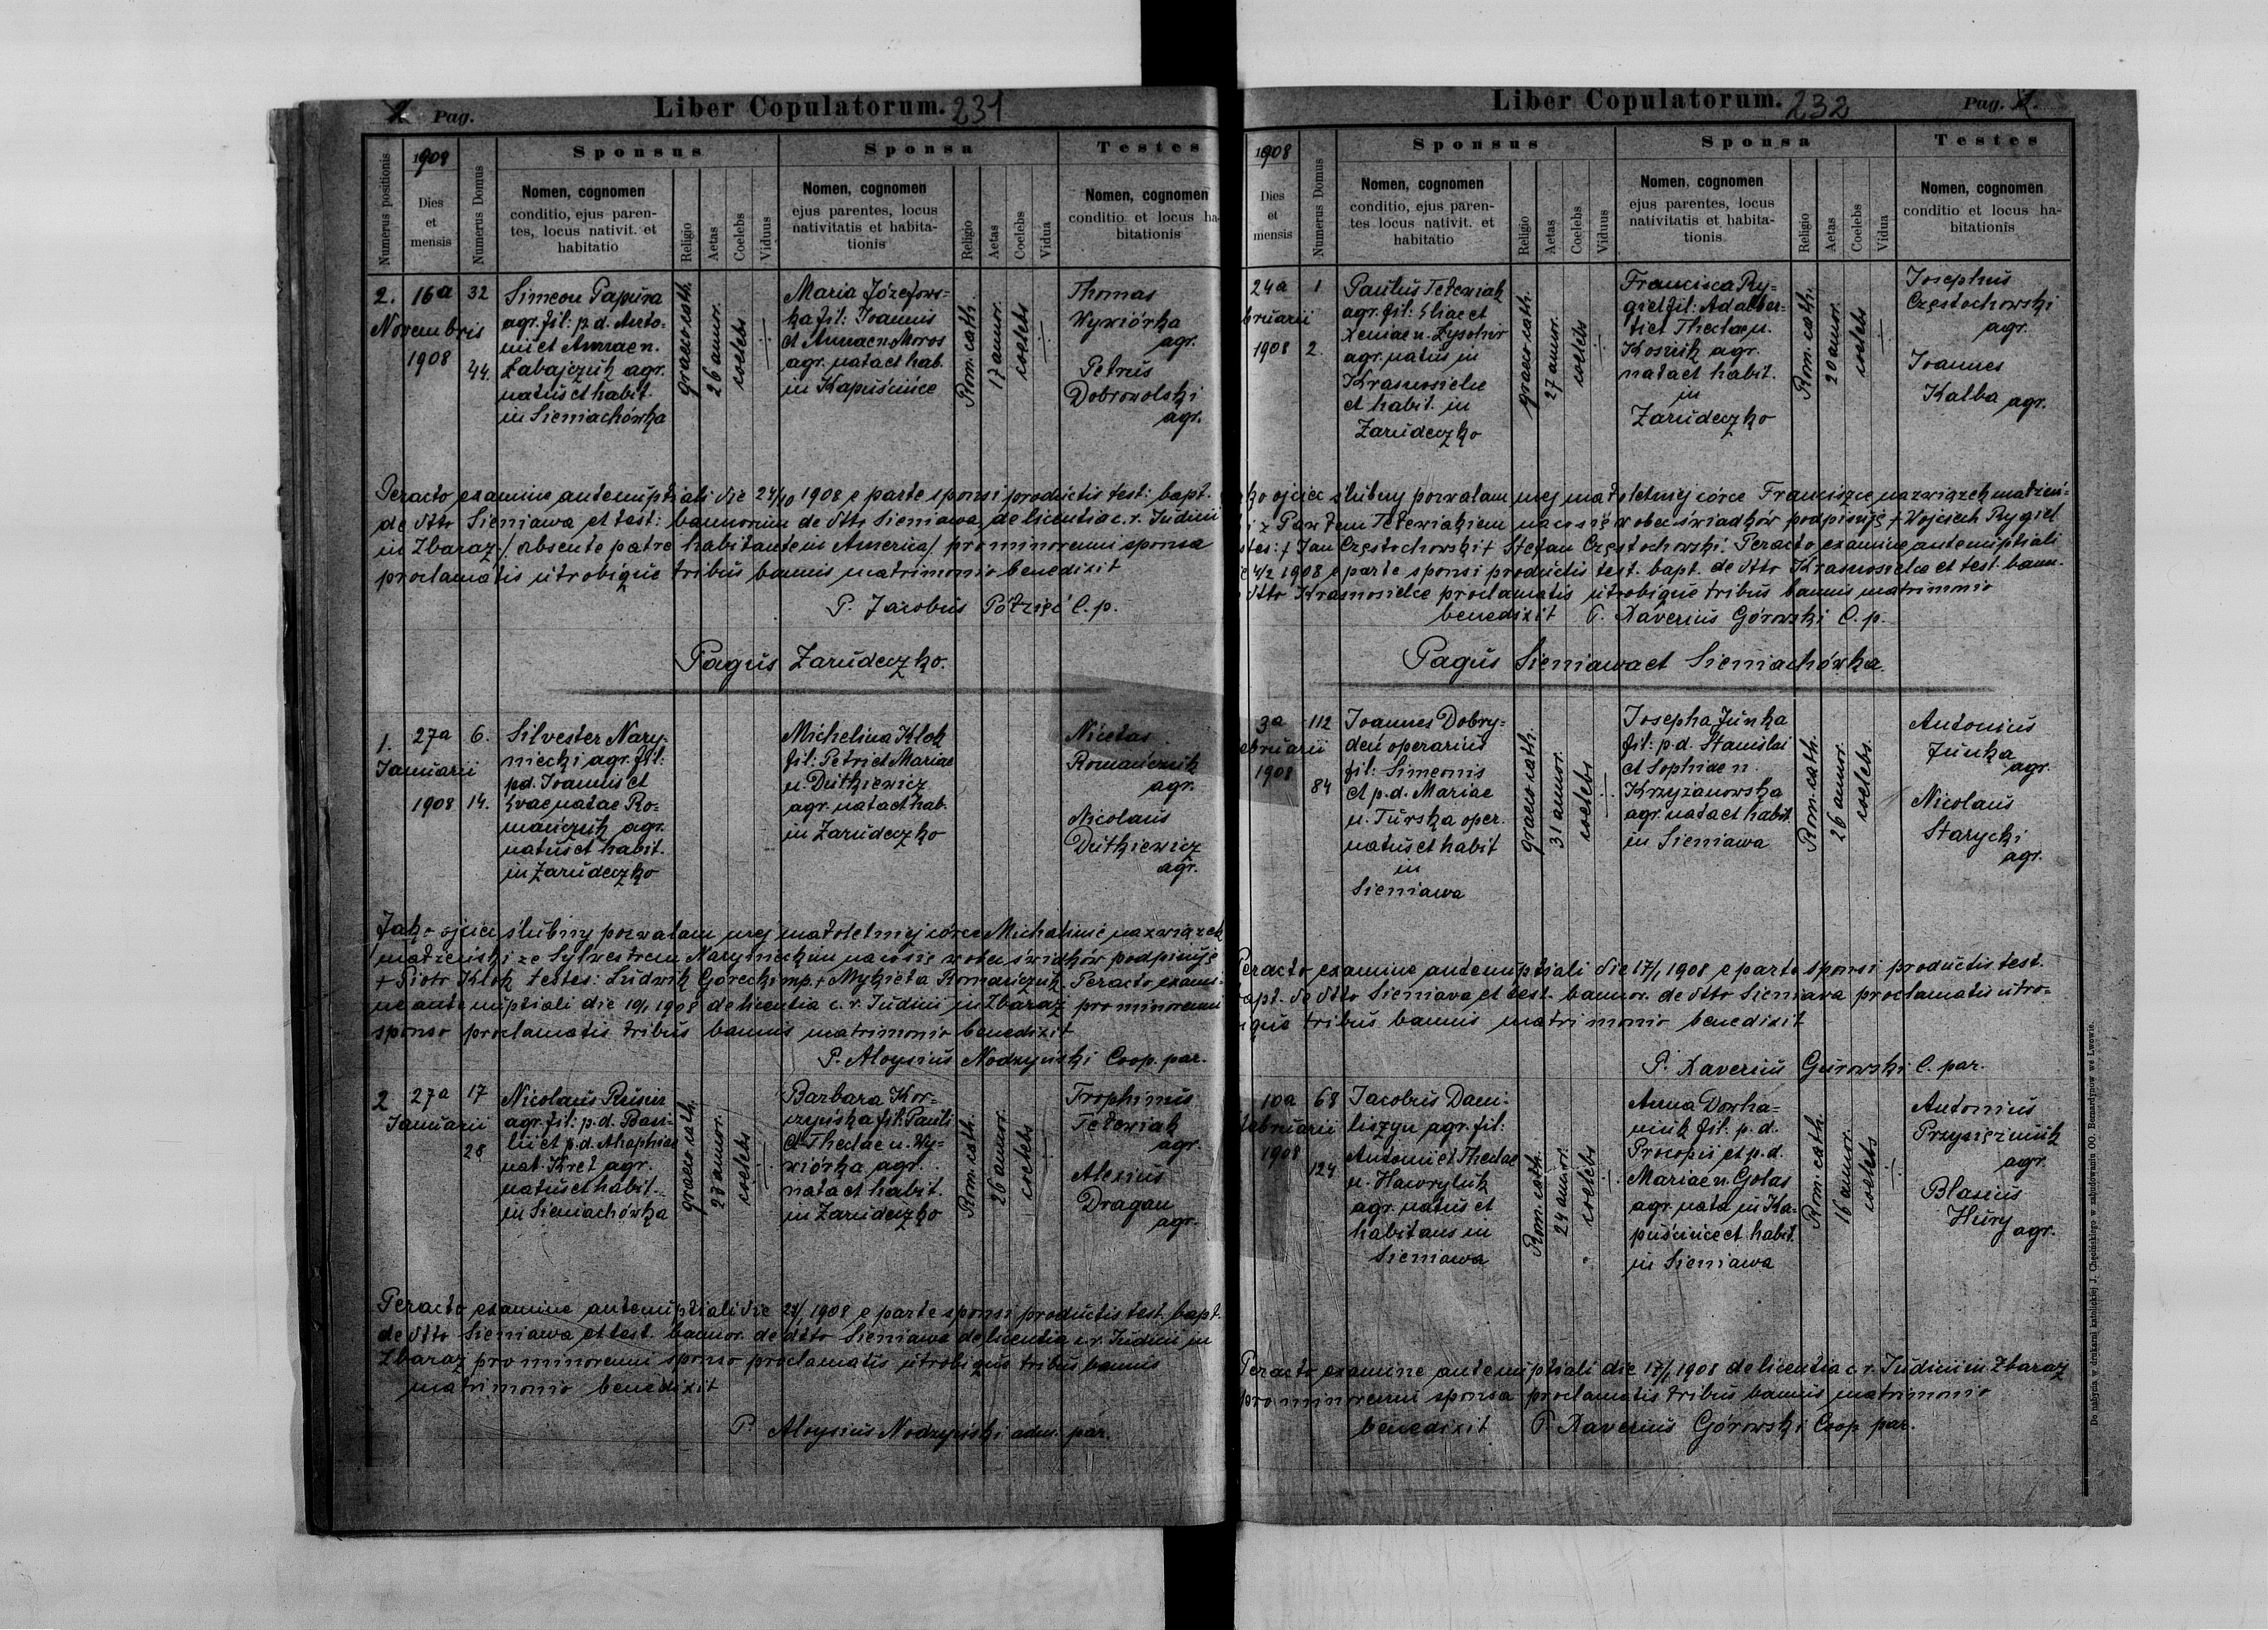 Pag.
Liber Copulatorum. 231
Numerus positionis
1908
Dies
et
mensis
Numerus Domus
Sponsus
Nomen, cognomen
conditio, ejus paren-
tes, locus nativit. et
habitatio
Religio
Aetas
Coelebs
Viduus
Sponsa
Nomen, cognomen
ejus parentes, locus
nativitatis et habita-
tionis
Religio
Aetas
Coelebs
Vidua
Testes
Nomen, cognomen
conditio et locus ha-
bitationis
2.
16a
Novembris
1908
32
44.
Simeon Papura
agr. fil: p.d. Anto=
nii et Annae n.
Zabajczuk agr.
natus et habit.
in Sieniachówka
graeco cath.
26 annor.
coelebs
Maria Józefows=
ka fil: Joannis
et Annae n. Moros
agr. nata et hab.
in Kapuścińce
Rom. cath.
17 annor.
coelebs
Thomas
Wywiórka
agr.
Petrus
Dobrowolski
agr.
Peracto examine antenuptiali die 24/10 1908 e parte sponsi productis test: bapt.
de dtto Sieniawa et test: bannorum de dtto Sieniawa, de licentia c. r. Judicii
in Zbaraż / absente patre habitante in America / pro minorenni sponsa
proclamatis utrobique tribus bannis matrimonio benedixit
P. Jacobus Półzięć C. p.
Pagus Zarudeczko.
1.
27a
Januarii
1908
6.
14.
Silvester Nary=
niecki agr. fil:
p.d. Joannis et
Evae natae Ro=
mańczuk agr.
natus et habit.
in Zarudeczko
Michelina Klok
fil: Petri et Mariae
n. Dutkiewicz
agr. nata et hab.
in Zarudeczko
Nicetas
Romańczuk
agr.
Nicolaus
Dutkiewicz
agr.
Jako ojciec ślubny pozwalam mej małoletniej córce Michalinie na związek
małżeński ze Sylwestrem Narynieckim na co się wobec świadków podpisuję
+ Piotr Klok testes: Ludwik Górecki mp. + Mykieta Romańczuk. Peracto exami=
ne antenuptiali die 19/1 1908 de licentia c. r. Judicii in Zbaraż pro minorenni
sponso proclamatis tribus bannis matrimonio benedixit
P. Aloysius Nodzyński Coop. par.
2
27a
Januarii
17
28
Nicolaus Rusin
agr. fil: p.d. Basi=
lii et p.d. Ahaphiae
nat. Kret agr.
natus et habit.
in Sieniachówka
graeco cath.
23 annor.
coelebs
Barbara Kor=
czyńska fil: Pauli
et Theclae n. Wy=
wiórka agr.
nata et habit.
in Zarudeczko
Rom. cath.
26 annor.
coelebs
Trophimus
Tetewiak
agr.
Alexius
Dragan
agr.
Peracto examine antenuptiali die 24/1 1908 e parte sponsi productis test. bapt.
de dtto Sieniawa et test. bannor. de dtto Sieniawa de licentia c. r. Judicii in
Zbaraż pro minorenni sponso proclamatis utrobique tribus bannis
matrimonio benedixit
P. Aloysius Nodzyński adm. par.
Liber Copulatorum. 232
Pag.
1908
Dies
et
mensis
Numerus Domus
Sponsus
Nomen, cognomen
conditio, ejus paren-
tes locus nativit. et
habitatio
Religio
Aetas
Coelebs
Viduus
Sponsa
Nomen, cognomen
ejus parentes, locus
nativitatis et habita-
tionis
Religio
Aetas
Coelebs
Vidua
Testes
Nomen, cognomen
conditio et locus ha-
bitationis
24a
bruarii
1908
1
2.
Paulus Tetewiak
agr. fil: Eliae et
Xeniae n. Łysohir
agr. natus in
Krasnosielce
et habit. in
Zarudeczko
graeco cath.
27 annor.
coelebs
Francisca Ry=
giel fil: Adalber=
ti et Theclae n.
Kośnik agr.
nata et habit.
in
Zarudeczko
Rom. cath.
20 annor.
coelebs
Josephus
Częstochowski
agr.
Joannes
Kałba agr.
ko ojciec ślubny pozwalam mej małoletniej córce Franciszce na związek małżeń=
i z Pawłem Tetewiakiem na co się wobec świadków podpisuję + Wojciech Rygiel
stes: + Jan Częstochowski + Stefan Częstochowski. Peracto examine antenuptiali
e 4/2 1908 e parte sponsi productis test. bapt. de dtto Krasnosielce et test. bann.
dtto Krasnosielce proclamatis utrobique tribus bannis matrimonio
benedixit P. Xaverius Górowski C. p.
Pagus Sieniawa et Sieniachówka.
3a
ebruarii
1908
112
84
Joannes Dobry=
deń operarius
fil: Simeonis
et p.d. Mariae
n. Turska oper.
natus et habit
in
Sieniawa
graeco cath.
31 annor.
coelebs
Josepha Junka
fil: p.d. Stanislai
et Sophiae n.
Krzyżanowska
agr. nata et habit.
in Sieniawa
Rom. cath.
26 annor.
coelebs.
Antonius
Junka
agr.
Nicolaus
Starycki
agr.
Peracto examine antenuptiali die 17/1 1908 e parte sponsi productis test.
apt. de dtto Sieniawa et test. bannor. de dtto Sieniawa proclamatis utro=
ique tribus bannis matrimonio benedixit
P. Xaverius Gurowski C. par.
10a
februarii
1908
68
124
Jacobus Dani=
liszyn agr. fil:
Antonii et Theclae
n. Hawryluk
agr. natus et
habitans in
Sieniawa
Rom. cath.
24 annor.
coelebs
Anna Dowha=
niuk fil: p.d.
Procopii et p.d.
Mariae n. Gołas
agr. nata in Ka=
puścińce et habit.
in Sieniawa
Rom. cath.
16 annor.
coelebs
Antonius
Przysiężniuk
agr.
Blasius
Hury agr.
Peracto examine antenuptiali die 17/1 1908 de licentia c. r. Judicii in Zbaraż
pro minorenni sponsa proclamatis tribus bannis matrimonio
benedixit P. Xaverius Górowski Coop. par.
Do nabycia w drukarni katolickiej J. Chęcińskiego w zabudowaniu OO. Bernardynów we Lwowie.